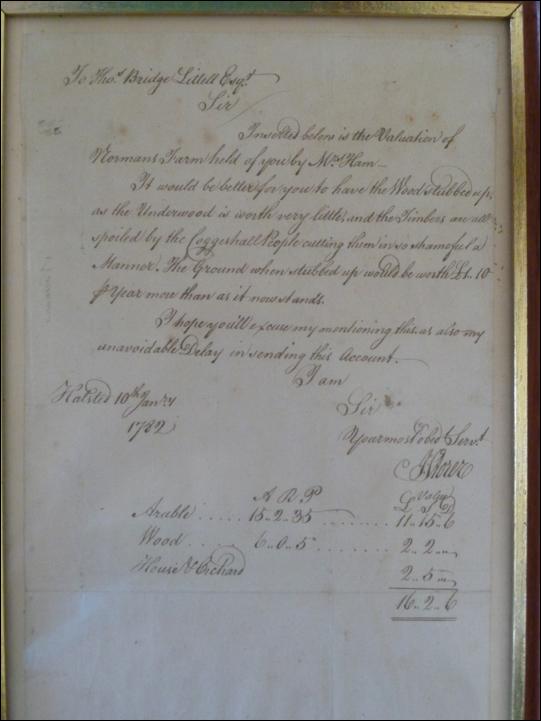 To Thos. Bridge Littell Esqr.
Sir
Inserted below is the Valuation of
Normans Farm held of you by Mrs. Ham
It would be better for you to have the Wood stubbed up,
as the Underwood is worth very little, and the Timbers are all
spoiled by the Coggeshall People cutting them in so shameful a
Manner. The Ground when stubbed up would be worth £1.. 10
⅌ Year more than as it now stands.
I hope you'll excuse my mentioning this, as also my
unavoidable Delay in sending this Account.
I am
Halsted 10th Jany.
Sir
1782
Your most Obedt. Servt.
A R P
Value
£ S D
Arable ..... 15..2..35 ....... 11..15..6
Wood ..... 6..0..5 ....... 2..2..
House & Orchard
2..5..
16..2..6